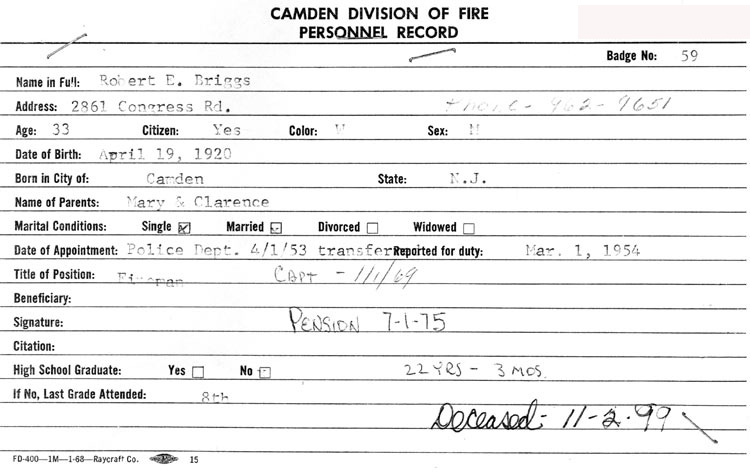 CAMDEN DIVISION OF FIRE
PERSONNEL RECORD
Badge No: 59
Name in Full: Robert E. Briggs
Address: 2861 Congress Rd. Phone - 962-9651
Age: 33 Citizen: Yes Color: W Sex: M
Date of Birth: April 19, 1920
Born in City of: Camden State: N.J.
Name of Parents: Mary & Clarence
Marital Conditions: Single Married Divorced Widowed
Date of Appointment: Police Dept. 4/1/53 transfer Reported for duty: Mar. 1, 1954
Title of Position: Fireman CAPT - 1/1/69
Beneficiary:
Signature: PENSION 7-1-75
Citation:
High School Graduate: Yes No 22 YRS - 3 MOS.
If No, Last Grade Attended: 8th
Deceased- 11-2-99
FD-400—1M—1-68—Raycraft Co. 15